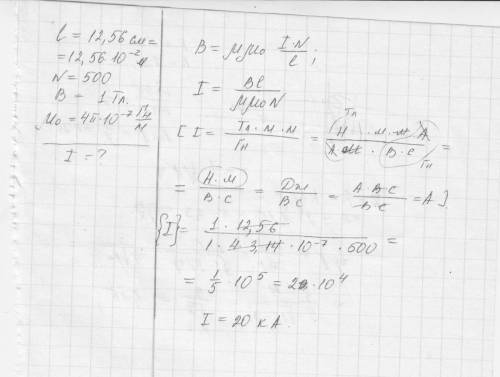 l = 12,56 см =
= 12,56·10⁻² м
N = 500
B = 1 Тл.
μ₀ = 4π·10⁻⁷ Гн/м
I = ?
B = μμ₀ I·N/l ;
I = Bl/μμ₀N
[ I = Тл·м·м/Гн = Тл Н·м·м·А/А·м·В·с Гн =
= Н·м/В·с = Дж/В с = А·В·с/В·с = А ].
{I} = 1·12,56/1·4·3,14·10⁻⁷·500 =
= 1/5 · 10⁵ = 2·10⁴
I = 20 кА.